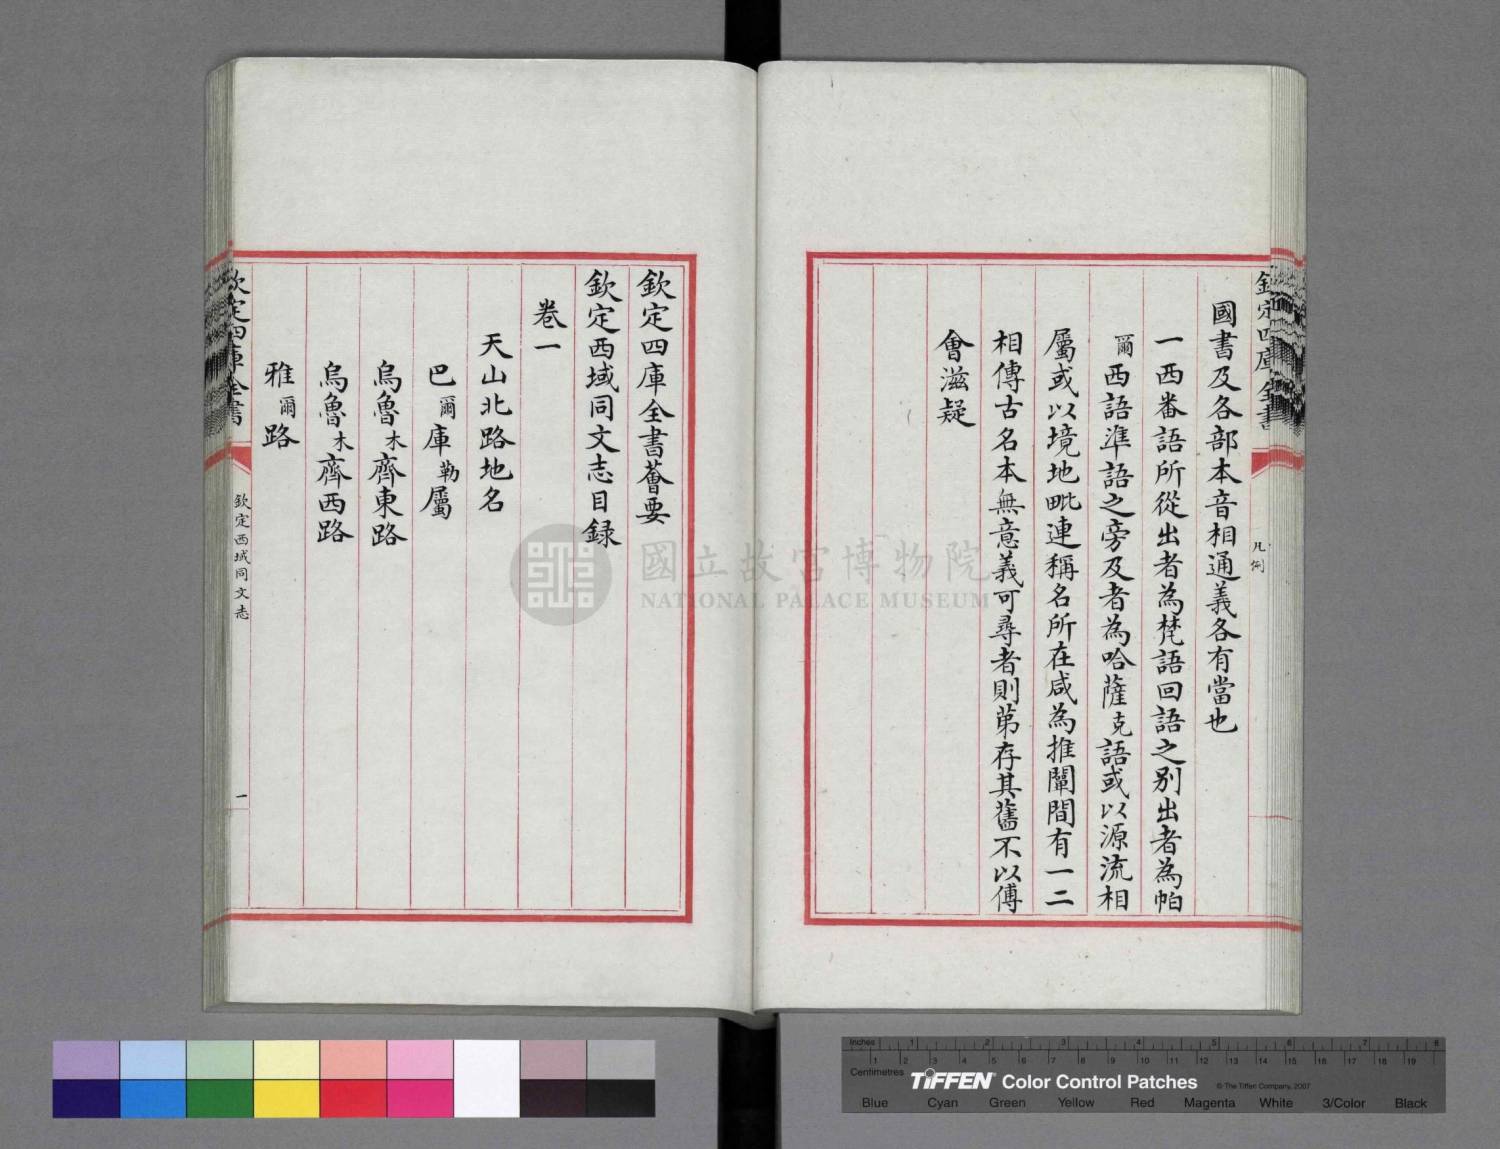 國書及各部本音相通義各有當也
一西番語所從出者為梵語回語之别出者為帕
爾西語準語之旁及者為哈薩克語或以源流相
屬或以境地毗連稱名所在咸為推闡間有一二
相傳古名本無意義可尋者則第存其舊不以傅
會滋疑
欽定四庫全書
凡例
欽定四庫全書薈要
欽定西域同文志目録
卷一
天山北路地名
巴爾庫勒屬
烏魯木齊東路
烏魯木齊西路
雅爾路
欽定四庫全書
欽定西域同文志
一
國立故宮博物院
NATIONAL PALACE MUSEUM
Inches 1 2 3 4 5 6 7 8
Centimetres 1 2 3 4 5 6 7 8 9 10 11 12 13 14 15 16 17 18 19
TIFFEN Color Control Patches © The Tiffen Company, 2007
Blue Cyan Green Yellow Red Magenta White 3/Color Black